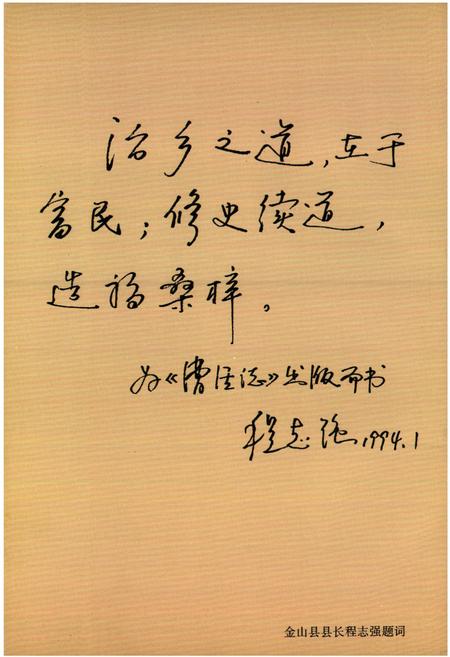 治乡之道，在于
富民；修史续道，
造福桑梓。
为《漕泾志》出版而书
程志强 1994.1
金山县县长程志强题词